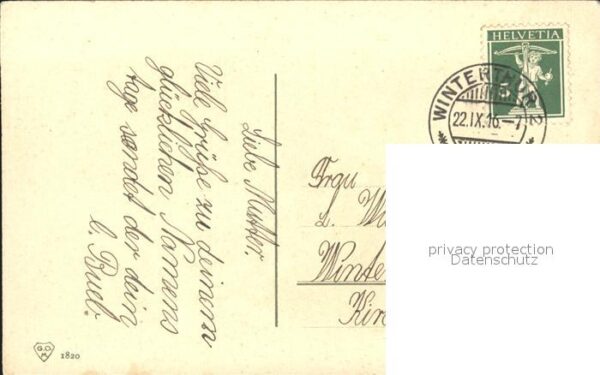 Liebe Mutter.
Viele Grüße zu deinem
glücklichen Namens
tage sendet der dein
l. Paul.
HELVETIA
5
WINTERTHUR 2
22.IX.16.–7
Frau
L.
Winte
Kir
privacy protection
Datenschutz
G.O.M.
1820